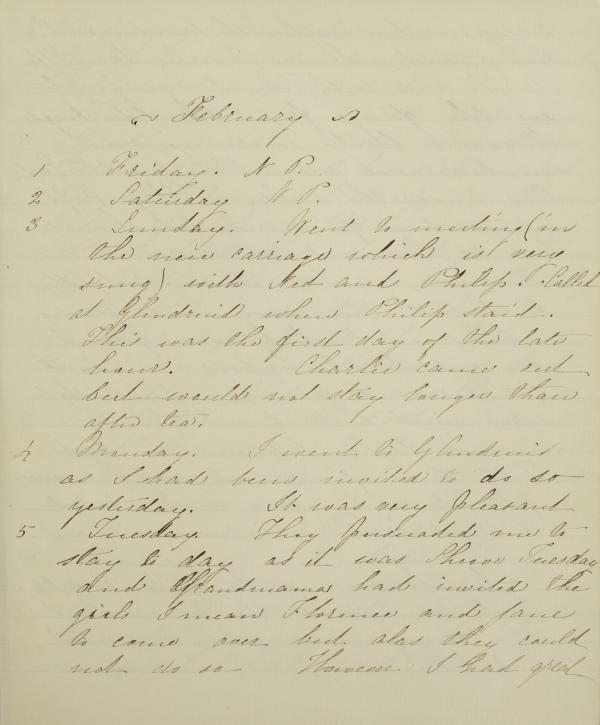 February
1 Friday. N P.
2 Saturday N P.
3 Sunday. Went to meeting (in
the new carriage which is very
snug) with Ned and Philip. Called
at Glendruid where Philip staid.
This was the first day of the late
hour. Charlie came out
but would not stay longer than
after tea.
4 Monday. I went to Glendruid
as I had been invited to do so
yesterday. It was very pleasant
5 Tuesday. They persuaded me to
stay to day as it was Shrove Tuesday
and Grandmama had invited the
girls I mean Florence and Jane
to come over but alas they could
not do so - However I had great